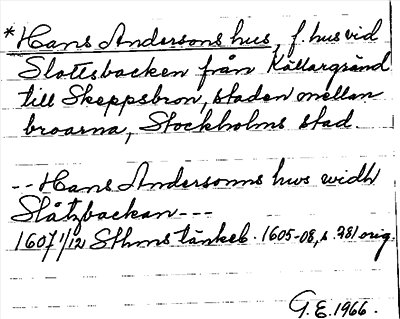 *Hans Andersons hus, f. hus vid
Slottsbacken från Källargränd
till Skeppsbron, staden mellan
broarna, Stockholms stad.
-- Hans Andersonns hws widh
Slåtzbackan ---
1607 1/12 Sthms tänkeb. 1605-08, s. 281 orig.
G.E. 1966.